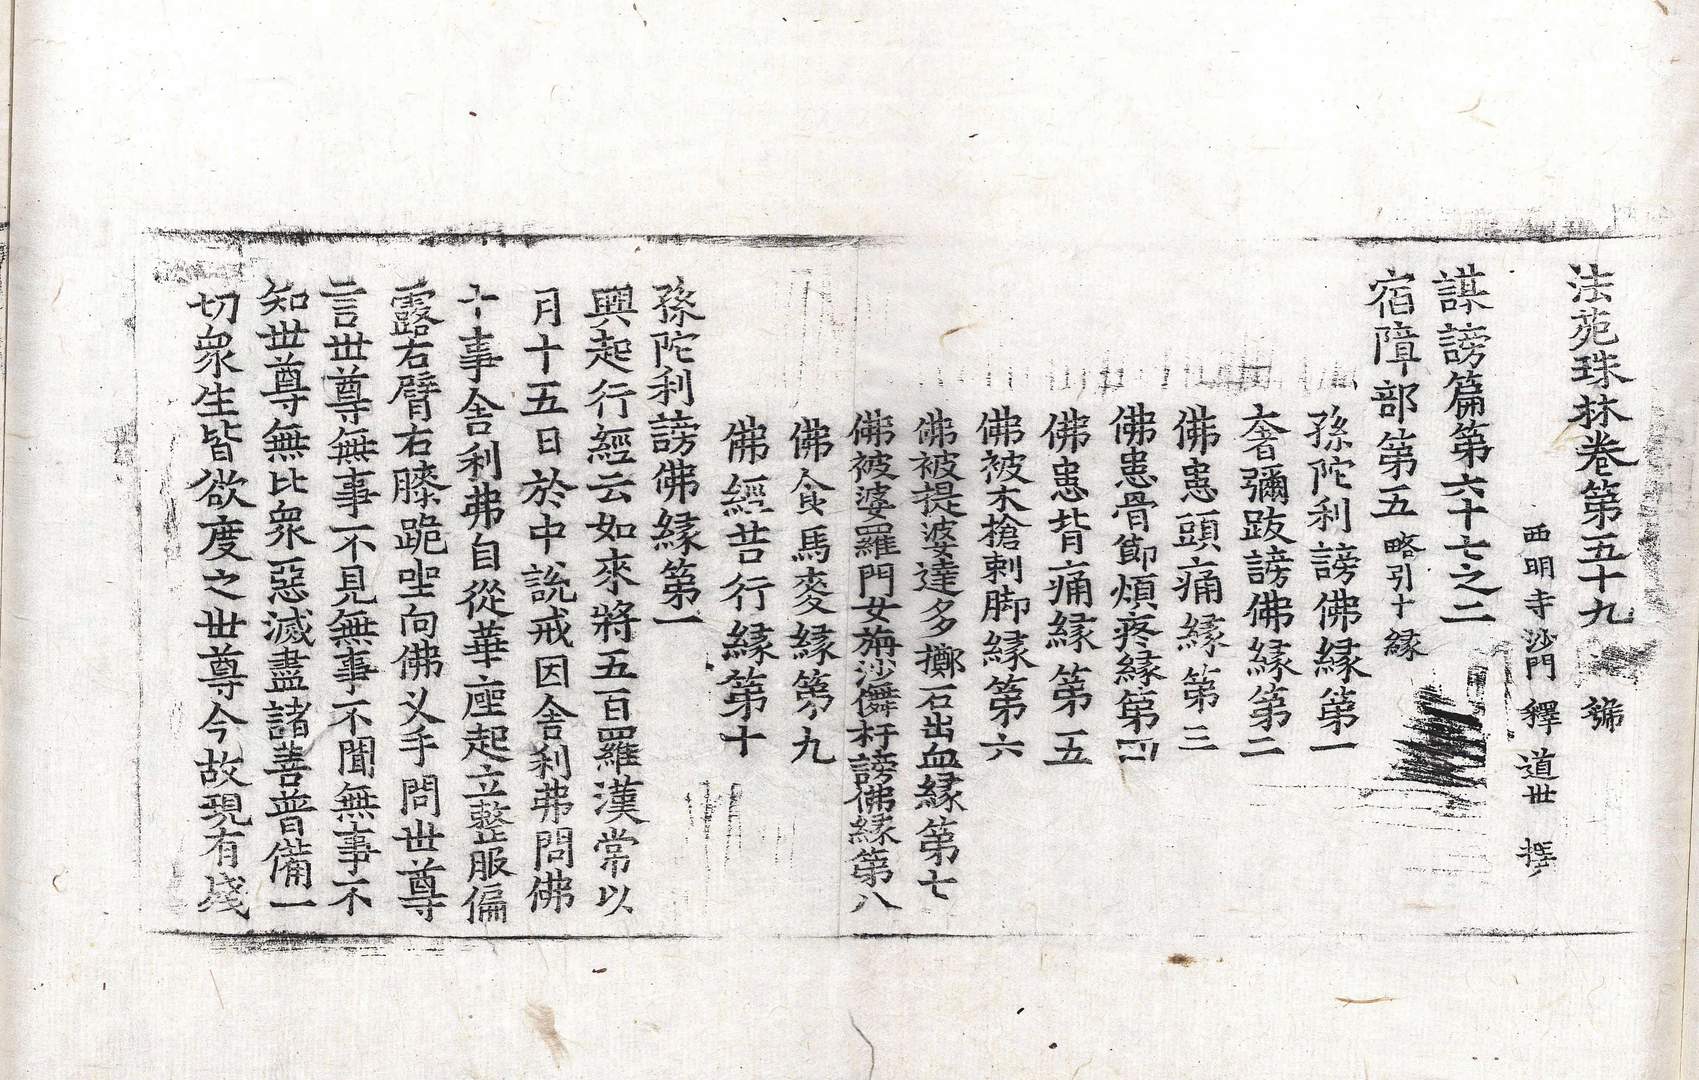 法苑珠林卷第五十九 
西明寺沙門釋道世 撰
謀謗篇第六十七之二
宿障部第五 略引十緣
孫陀利謗佛緣第一
奢彌跋謗佛緣第二
佛患頭痛緣第三
佛患骨節煩疼緣第四
佛患背痛緣第五
佛被木槍刺脚緣第六
佛被提婆達多擲石出血緣第七
佛被婆羅門女旃沙儛杅謗佛緣第八
佛食馬麥緣第九
佛經苦行緣第十
孫陀利謗佛緣第一
興起行經云如來將五百羅漢常以
月十五日於中說戒因舍利弗問佛
十事舍利弗自從華座起立整服偏
露右臂右膝跪坐向佛叉手問世尊
言世尊無事不見無事不聞無事不
知世尊無比衆惡滅盡諸善普備一
切衆生皆欲度之世尊今故現有殘